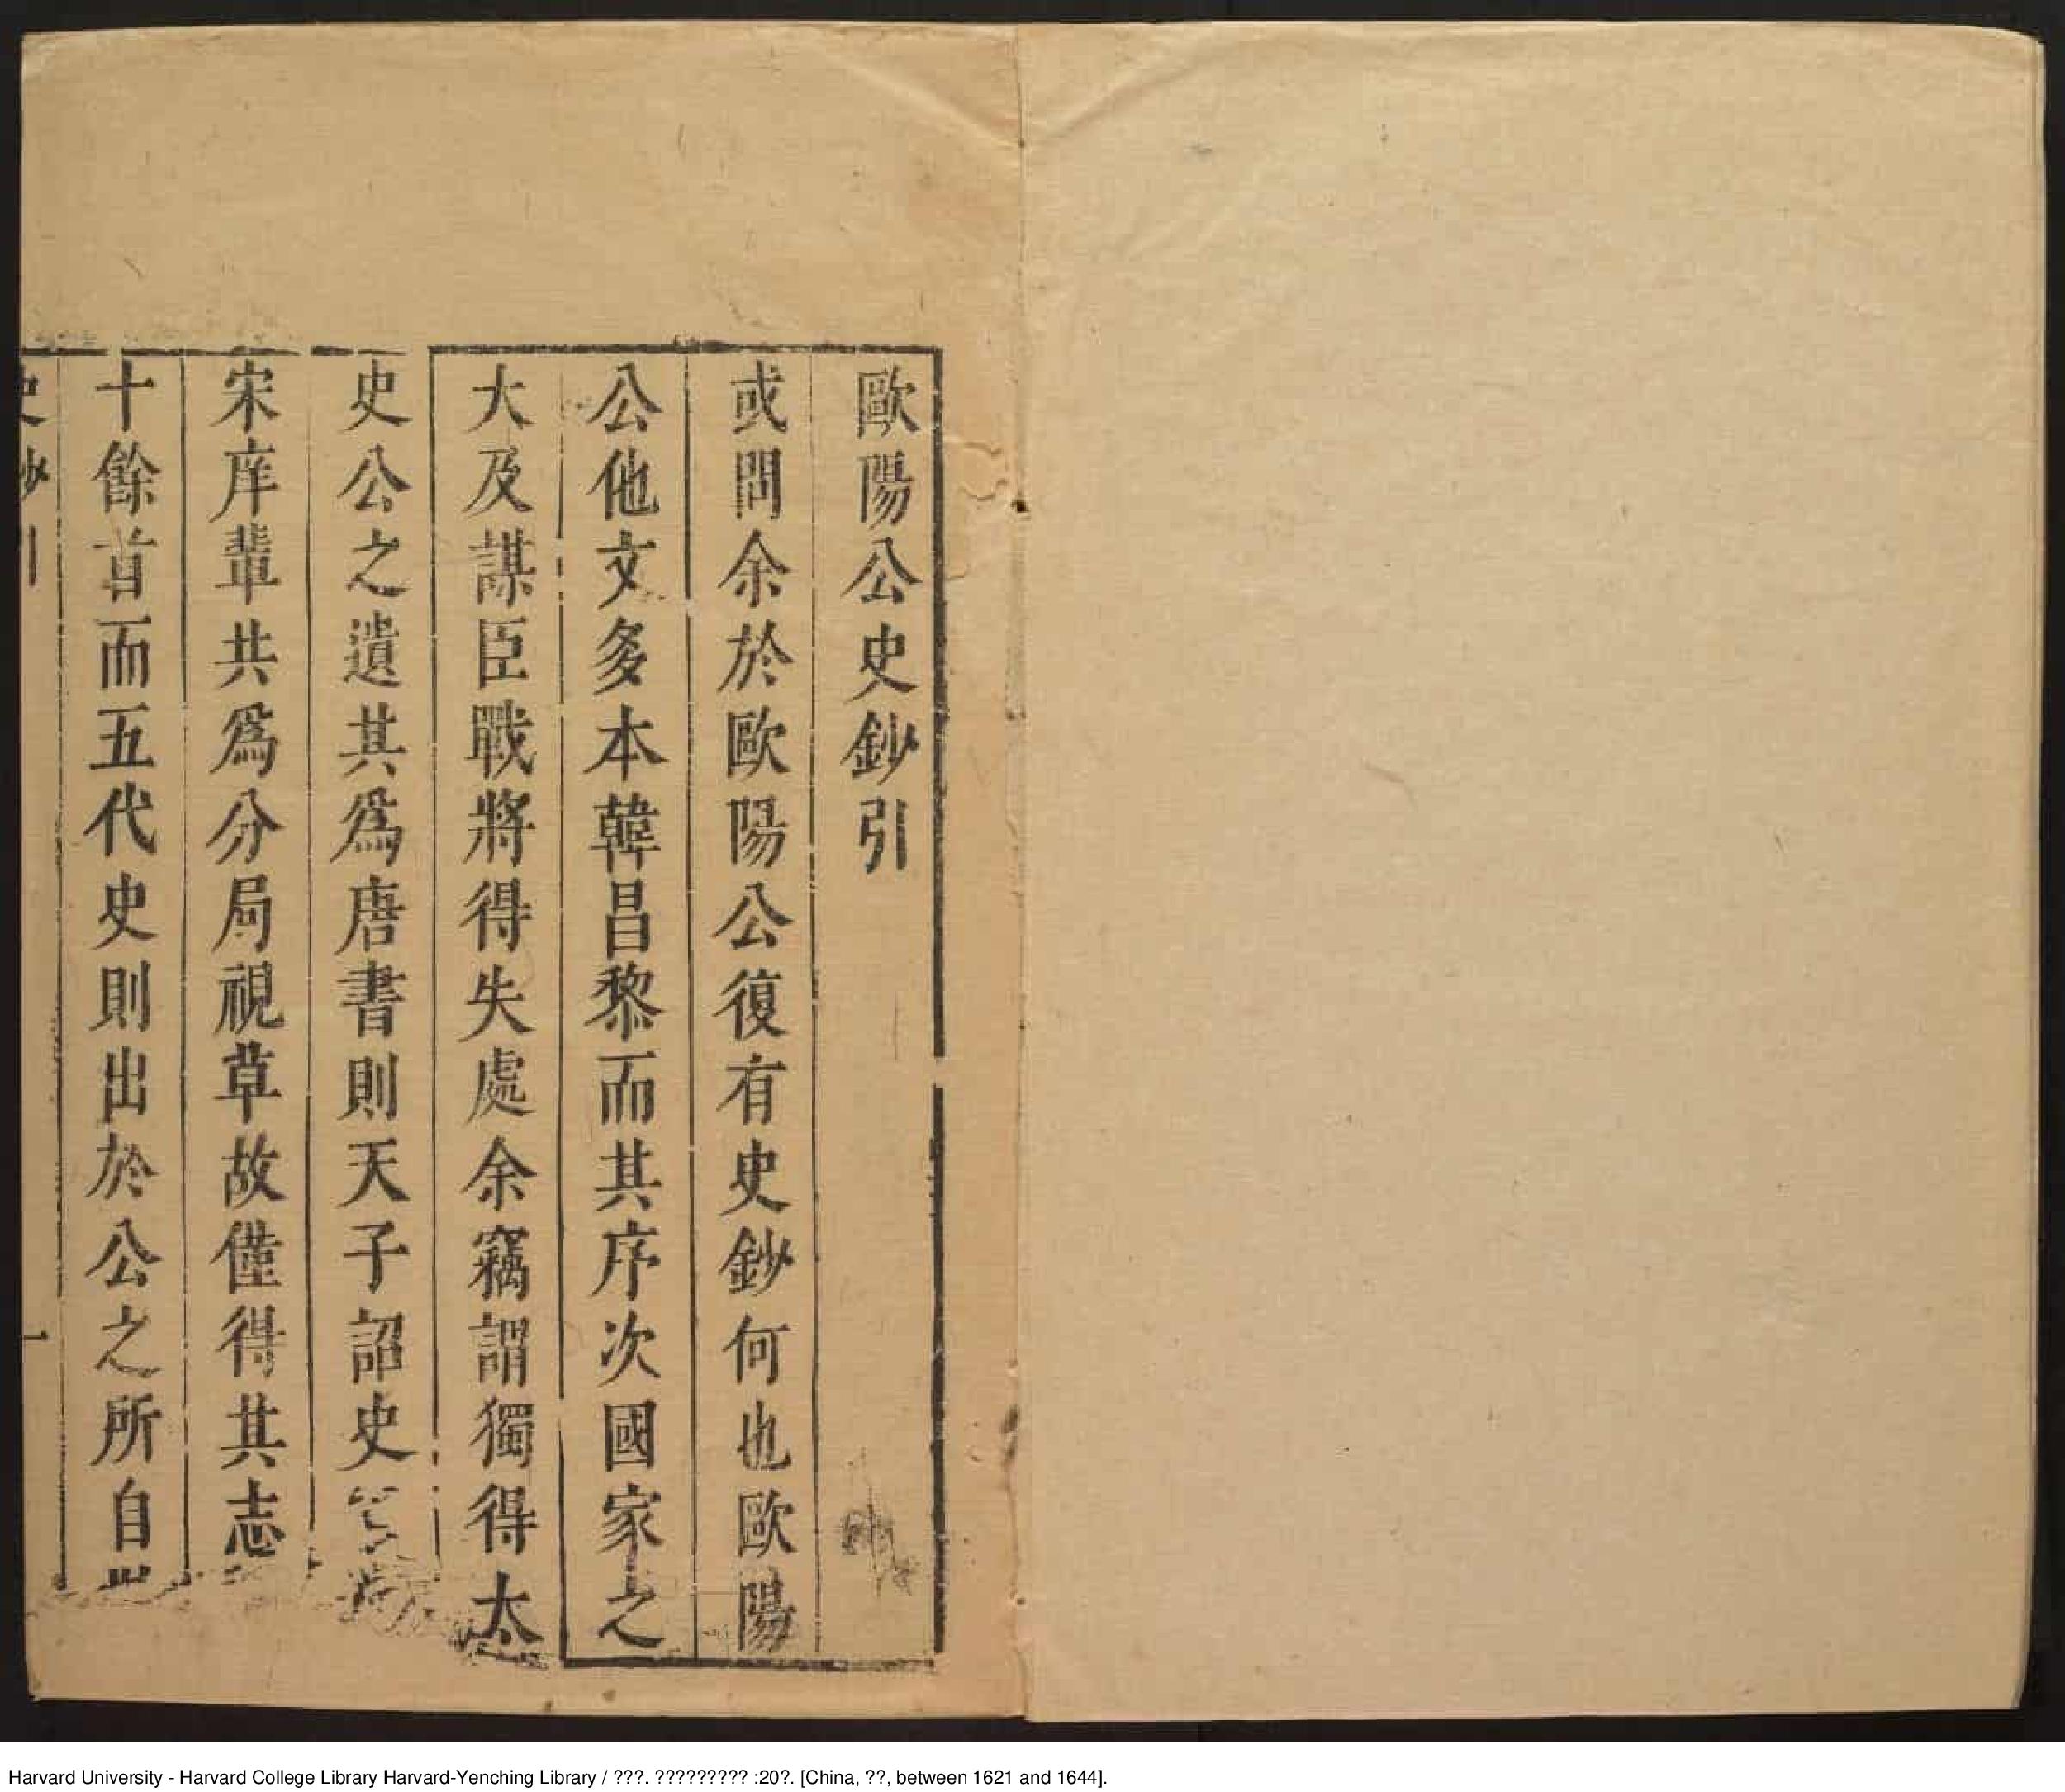 歐陽公史鈔引
或問余於歐陽公復有史鈔何也歐陽
公他文多本韓昌黎而其序次國家之
大及謀臣戰將得失處余竊謂獨得太
史公之遺其爲唐書則天子詔史
宋庠輩共爲分局視草故僅得其志
十餘首而五代史則出於公之所自
史鈔引
一
Harvard University - Harvard College Library Harvard-Yenching Library / ???. ????????? :20?. [China, ??, between 1621 and 1644].